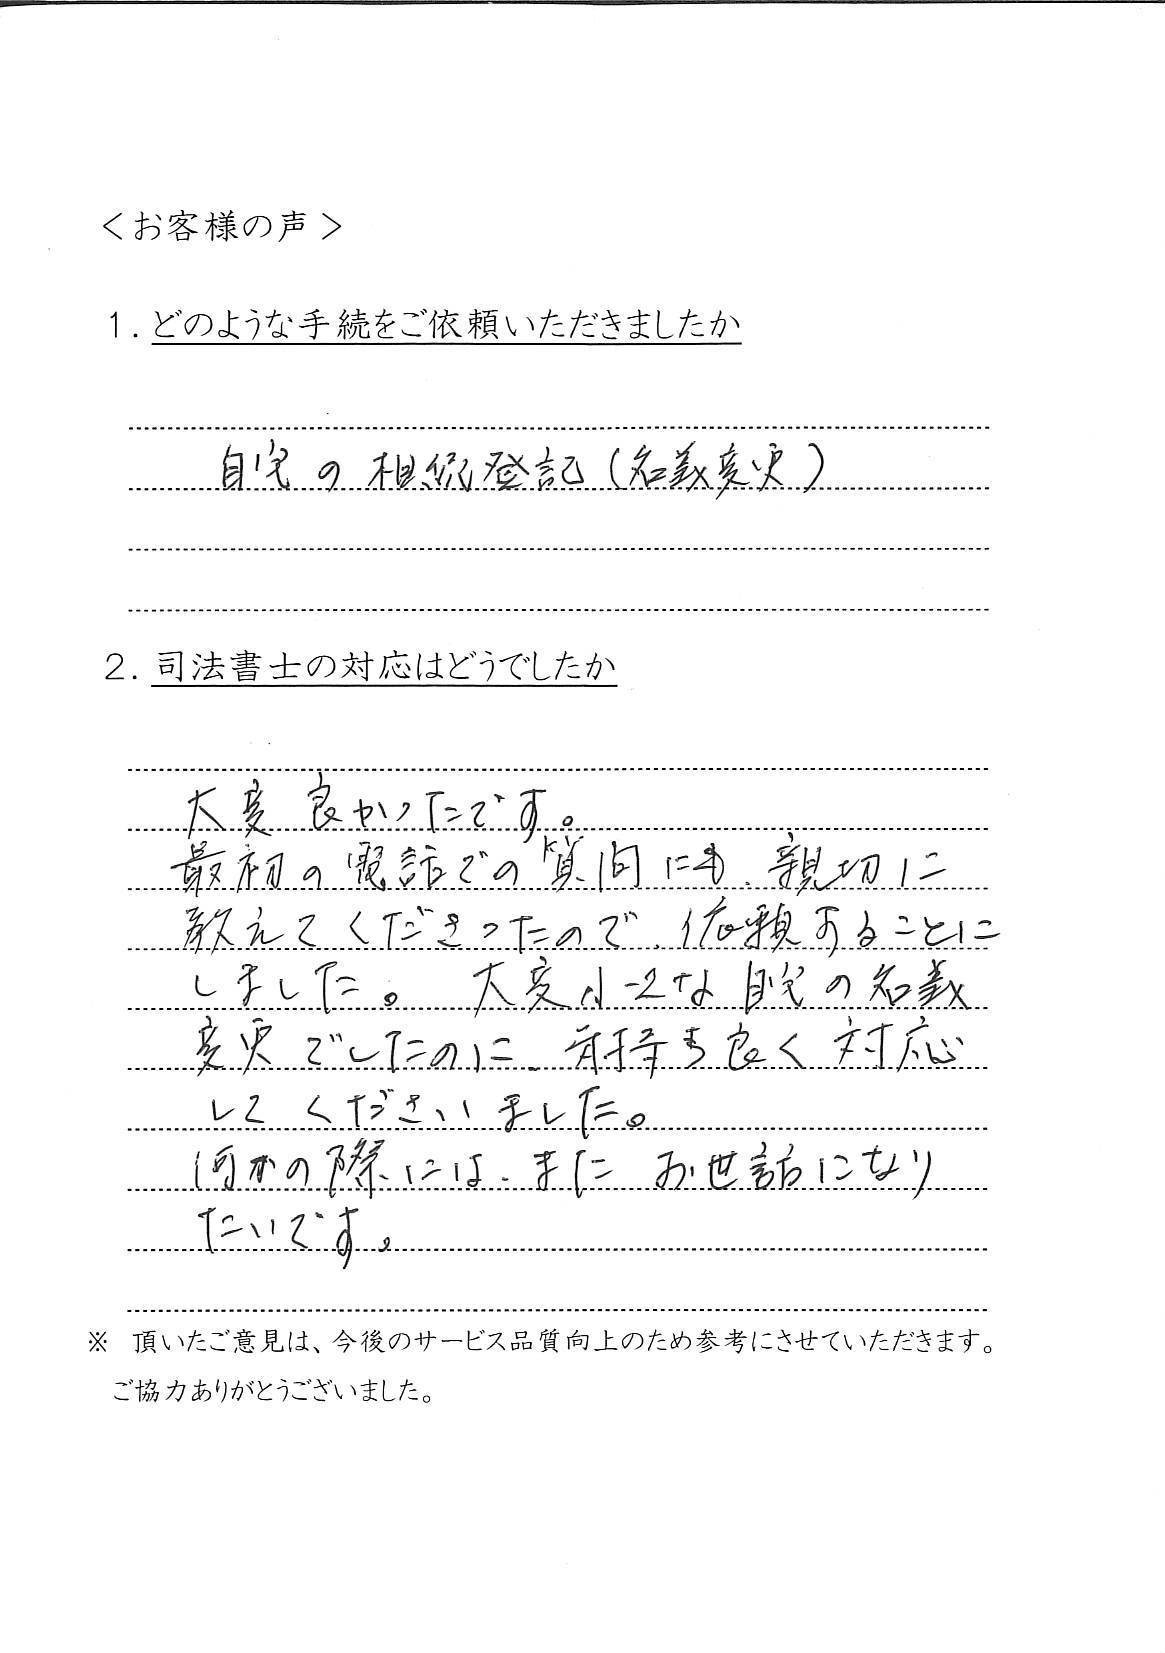 ＜お客様の声＞
１．どのような手続をご依頼いただきましたか
自宅の相続登記（名義変更）
２．司法書士の対応はどうでしたか
大変良かったです。
最初の電話での質問にも、親切に
教えてくださったので、依頼することに
しました。大変小さな自宅の名義
変更でしたのに、気持ち良く対応
してくださいました。
何かの際には、また お世話になり
たいです。
※ 頂いたご意見は、今後のサービス品質向上のため参考にさせていただきます。
ご協力ありがとうございました。